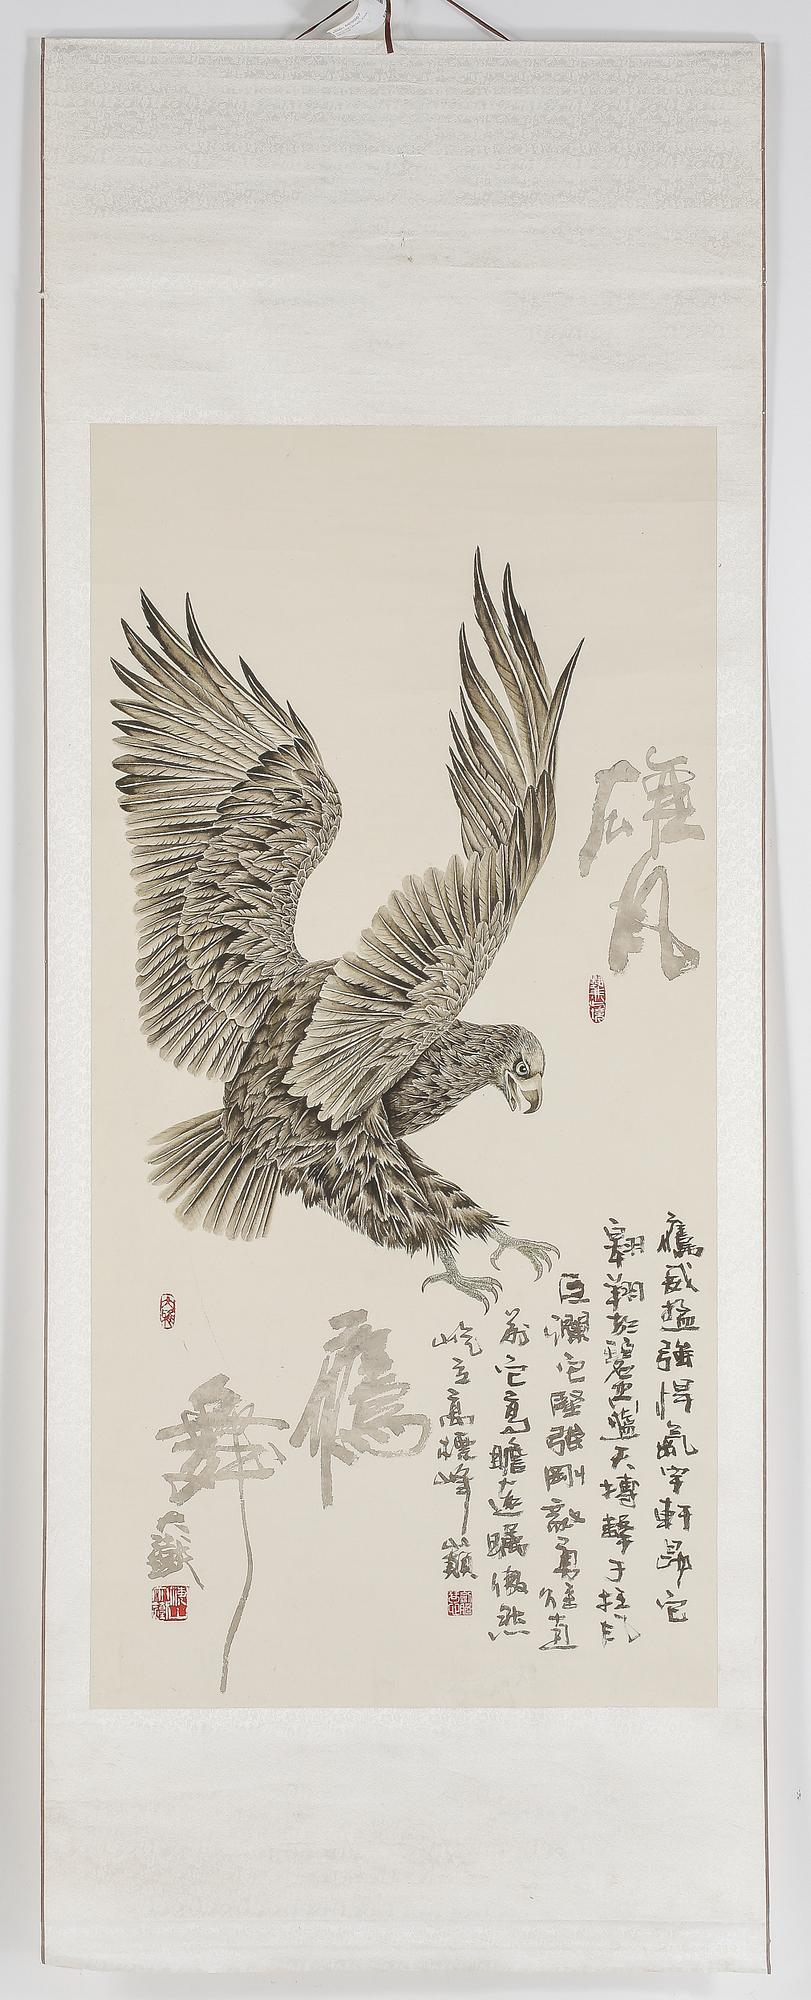 雄风
鷹威猛強悍氣宇軒昂它
翱翔於碧空蓝天搏擊于狂风
巨瀾它堅强剛毅勇往直
前它高瞻大遠瞩傲然
屹立高標峰巅
鷹
舞